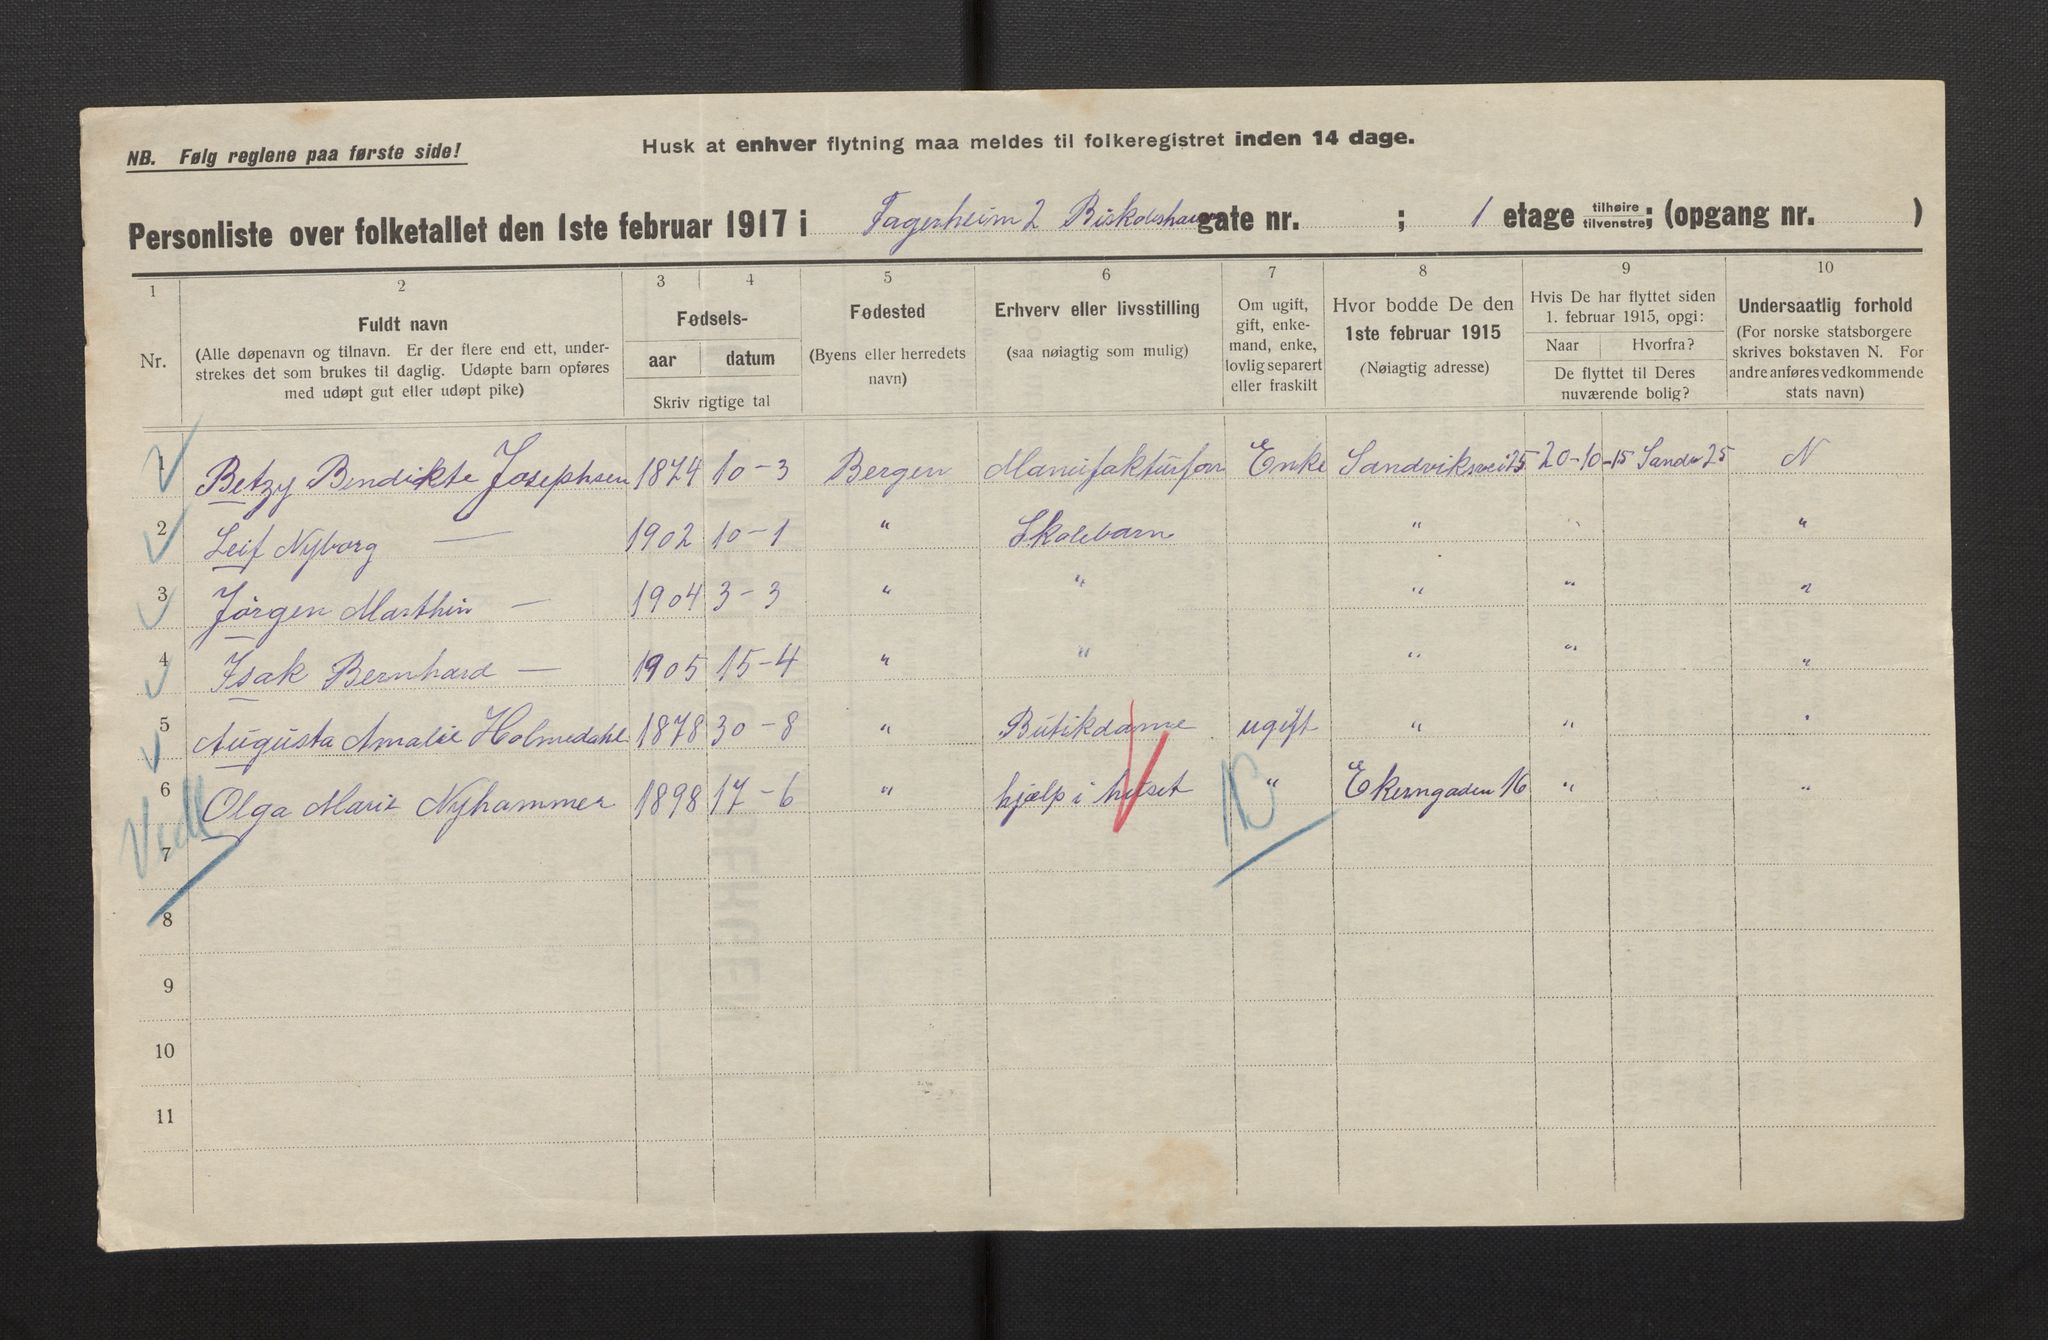 NB. Følg reglene paa første side!
Husk at enhver flytning maa meldes til folkeregistret inden 14 dage.
Personliste over folketallet den 1ste februar 1917 i Fagerheim 2 gate nr. ; 1 etage tilhøire tilvenstre; (opgang nr. )
1 2 3 4 5 6 7 8 9 10
Nr.
Fuldt navn
(Alle døpenavn og tilnavn. Er der flere end ett, under-
strekes det som brukes til daglig. Udøpte barn opføres
med udøpt gut eller udøpt pike)
Fødsels-
aar datum
Skriv rigtige tal
Fødested
(Byens eller herredets
navn)
Erhverv eller livsstilling
(saa nøiagtig som mulig)
Om ugift,
gift, enke-
mand, enke,
lovlig separert
eller fraskilt
Hvor bodde De den
1ste februar 1915
(Nøiagtig adresse)
Hvis De har flyttet siden
1. februar 1915, opgi:
Naar Hvorfra?
De flyttet til Deres
nuværende bolig?
Undersaatlig forhold
(For norske statsborgere
skrives bokstaven N. For
andre anføres vedkommende
stats navn)
1 Betzy Bendikte Josephsen 1874 10-3 Bergen Manufakturforr Enke Sandviksvei 25 20-10-15 Sandv 25 N
2 Leif Nyborg — 1902 10-1 " Skolebarn " " "
3 Jørgen Marthin — 1904 3-3 " " " " "
4 Isak Bernhard — 1905 15-4 " " " " "
5 Augusta Amalie Holmedahl 1878 30-8 " Butikdame ugift " " "
6 Olga Marie Nyhammer 1898 17-6 " hjælp i huset " Ekerngaden 16 " "
7
8
9
10
11